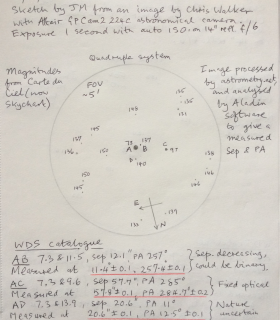 Sketch by JM from an image by Chris Walker
with Altair GPCam2 224c astronomical camera.
Exposure 1 second with auto ISO on 14" f/6
Quadruple system
Magnitudes
from Carte du
Ciel (now
skychart)
FOV
~5'
Image processed
by astrometry.net,
and analysed
by Aladin
software
to give a
measured
Sep & PA
73
A
B
C
97
140
E
N
WDS catalogue
AB 7.3 & 11.5, sep 12.1" PA 257°
Measured at 11.4"±0.1, 257.4±0.1
Sep. decreasing,
could be binary
AC 7.3 & 9.6, sep 57.7" PA 285°
Measured at 57.8"±0.1 PA 284.7°±0.2
Fixed optical
AD 7.3 & 13.9, sep 20.6" PA 11°
Measured at 20.6"±0.1, PA 12.5°±0.1
Nature
uncertain